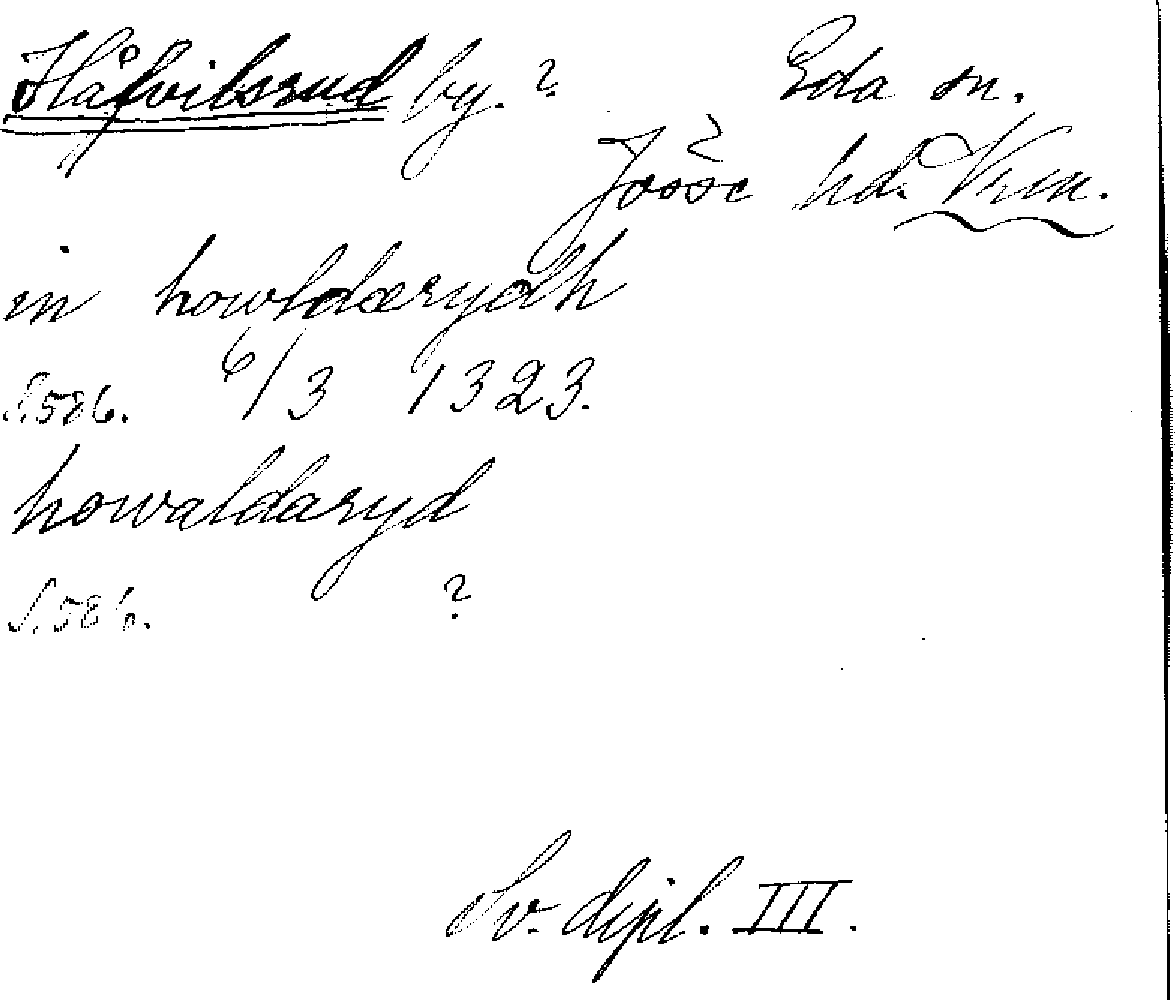 Håfvilsrud by. ? Eda sn.
Jösse hd. Vrm.
in howldærydh
S. 586. 6/3 1323.
howaldaryd
S. 586. ?
Sv. dipl. III.